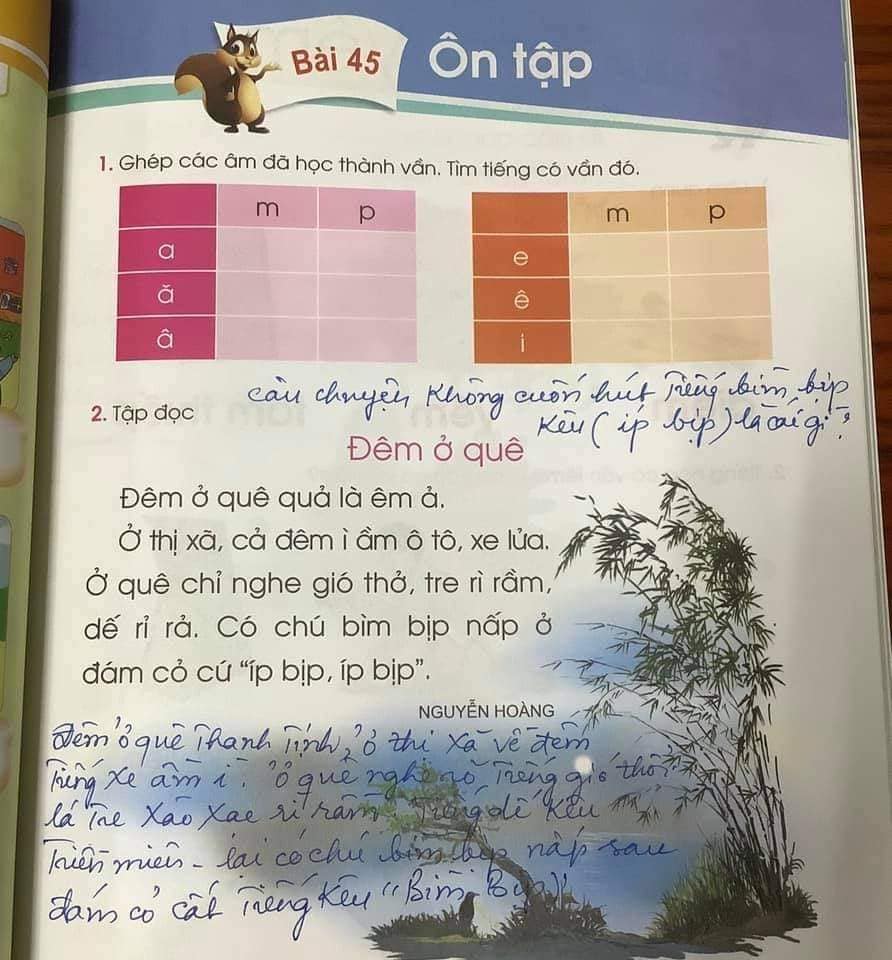 Bài 45
Ôn tập
1. Ghép các âm đã học thành vần. Tìm tiếng có vần đó.
m p
a
ă
â
m p
e
ê
i
câu chuyện không cuốn hút Tiếng bìm bịp
kêu (íp bịp) là cái gì?
2. Tập đọc
Đêm ở quê
Đêm ở quê quả là êm ả.
Ở thị xã, cả đêm ì ầm ô tô, xe lửa.
Ở quê chỉ nghe gió thở, tre rì rầm,
dế rỉ rả. Có chú bìm bịp nấp ở
đám cỏ cứ “íp bịp, íp bịp”.
NGUYỄN HOÀNG
Đêm ở quê Thanh Tịnh, ở thị xã về đêm
Tiếng xe ầm ì. ở quê nghe rõ Tiếng gió thổi
lá Tre xào xạc rì rầm, Tiếng dế kêu
Triền miên - lại có chú bìm bịp nấp sau
đám cỏ cất Tiếng Kêu “Bìm Bịp”